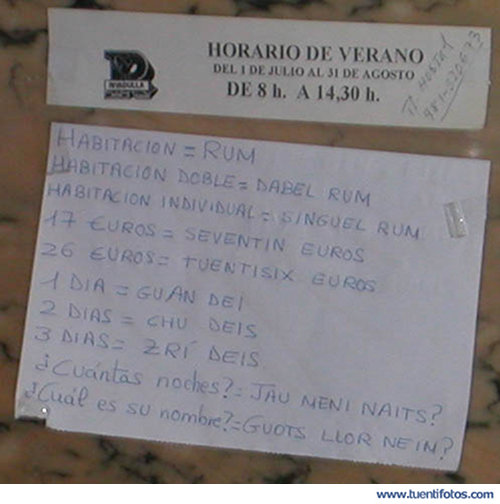 HORARIO DE VERANO
DEL 1 DE JULIO AL 31 DE AGOSTO
DE 8 h. A 14,30 h.
HABITACION = RUM
HABITACION DOBLE = DABEL RUM
HABITACION INDIVIDUAL = SINGUEL RUM
17 EUROS = SEVENTIN EUROS
26 EUROS = TUENTISIX EUROS
1 DIA = GUAN DEI
2 DIAS = CHU DEIS
3 DIAS = ZRÍ DEIS
¿Cuántas noches? = JAU MENI NAITS?
¿Cuál es su nombre? = GUOTS LLOR NEIM?
www.tuentifotos.com